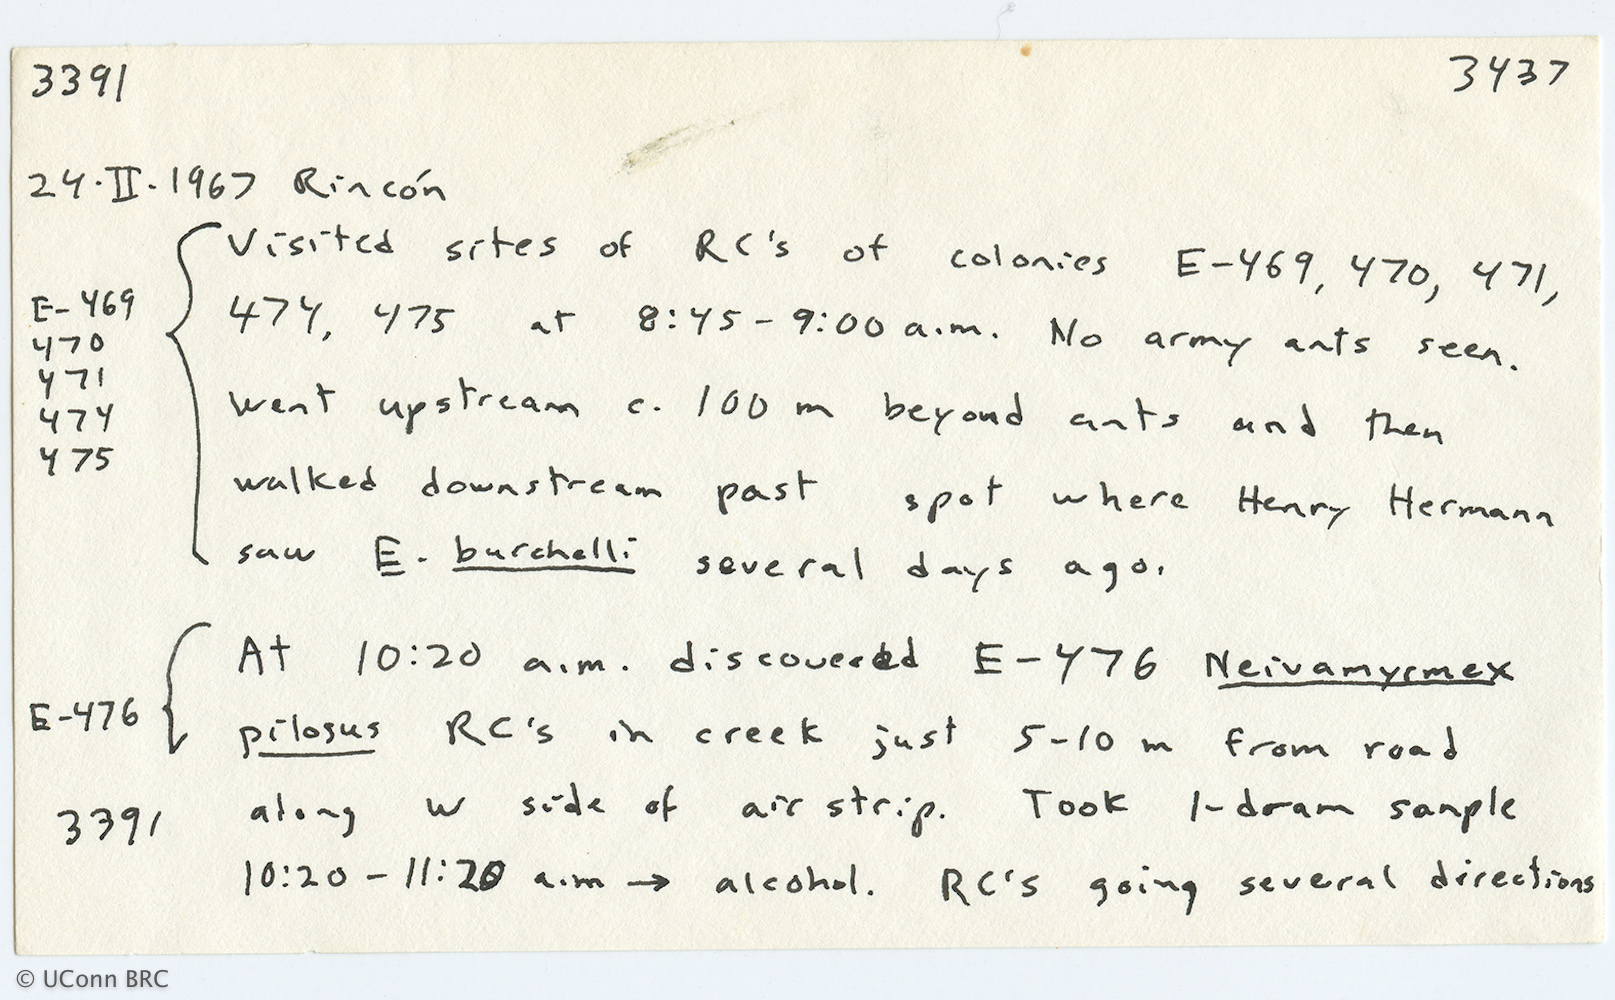 3391 3437
24.II.1967 Rincón
Visited sites of RC's of colonies E-469, 470, 471,
E-469
470
471
474
475
474, 475 at 8:45-9:00 a.m. No army ants seen.
Went upstream c. 100 m beyond ants and then
walked downstream past spot where Henry Hermann
saw E. burchelli several days ago.
At 10:20 a.m. discovered E-476 Neivamyrmex
E-476
pilosus RC's in creek just 5-10 m from road
along W side of air strip. Took 1-dram sample
3391
10:20-11:20 a.m → alcohol. RC's going several directions
© UConn BRC